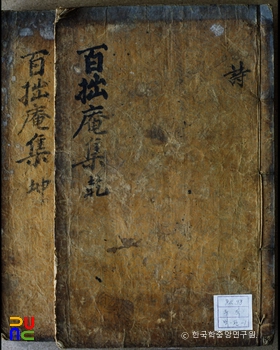 詩
百拙庵集 乾
百拙庵集 坤
© 한국학중앙연구원